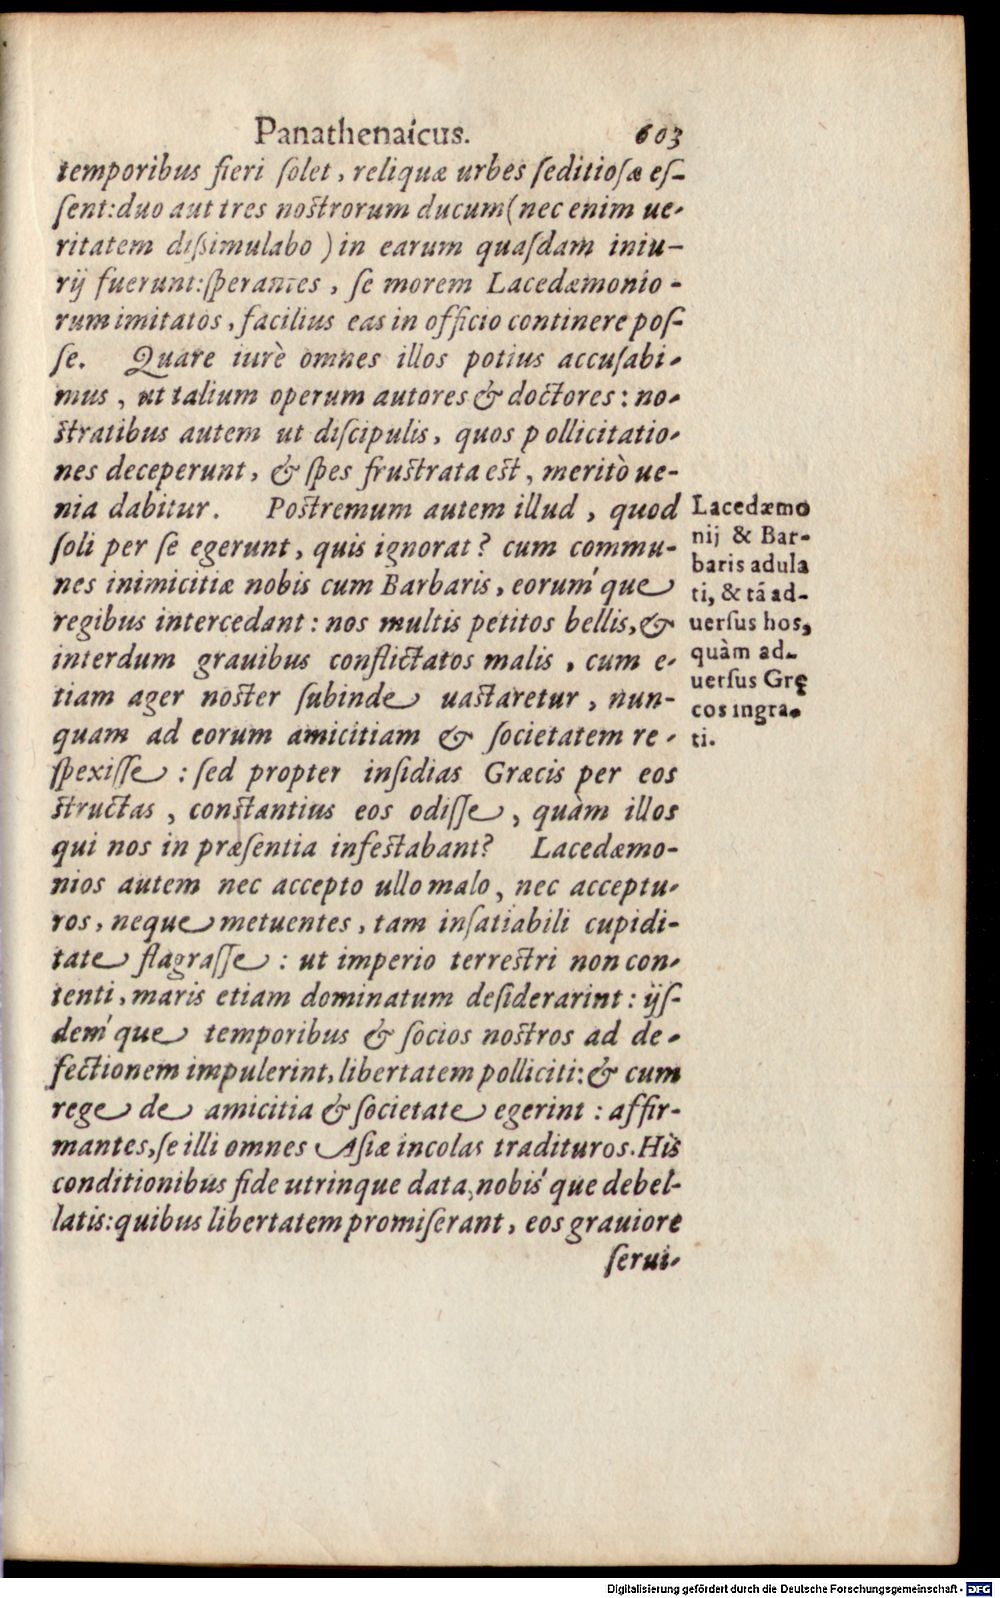 Panathenaicus. 603
temporibus fieri ſolet, reliquæ urbes ſeditioſæ eſ-
ſent: duo aut tres noſtrorum ducum (nec enim ue-
ritatem diſsimulabo) in earum quaſdam iniu-
rij fuerunt: ſperantes, ſe morem Lacedæmonio-
rum imitatos, facilius eas in officio continere poſ-
ſe. Quare iurè omnes illos potius accuſabi-
mus, ut talium operum autores & doctores: no-
ſtratibus autem ut diſcipulis, quos pollicitatio-
nes deceperunt, & ſpes fruſtrata eſt, meritò ue-
nia dabitur. Poſtremum autem illud, quod
ſoli per ſe egerunt, quis ignorat? cum commu-
nes inimicitiæ nobis cum Barbaris, eoruḿque
regibus intercedant: nos multis petitos bellis, &
interdum grauibus conflictatos malis, cum e-
tiam ager noſter ſubinde uaſtaretur, nun-
quam ad eorum amicitiam & ſocietatem re-
ſpexiſſe: ſed propter inſidias Græcis per eos
ſtructas, conſtantius eos odiſſe, quàm illos
qui nos in præſentia infeſtabant? Lacedæmo-
nios autem nec accepto ullo malo, nec acceptu-
ros, neque metuentes, tam inſatiabili cupidi-
tate flagraſſe: ut imperio terreſtri non con-
tenti, maris etiam dominatum deſiderarint: ijſ-
deḿque temporibus & ſocios noſtros ad de-
fectionem impulerint, libertatem polliciti: & cum
rege de amicitia & ſocietate egerint: affir-
mantes, ſe illi omnes Aſiæ incolas tradituros. His
conditionibus fide utrinque data, nobiś que debel-
latis: quibus libertatem promiſerant, eos grauiore
ſerui-
Lacedæmo
nij & Bar-
baris adula
ti, & tā ad-
uerſus hos,
quàm ad-
uerſus Grę
cos ingra-
ti.
Digitalisierung gefördert durch die Deutsche Forschungsgemeinschaft - DFG